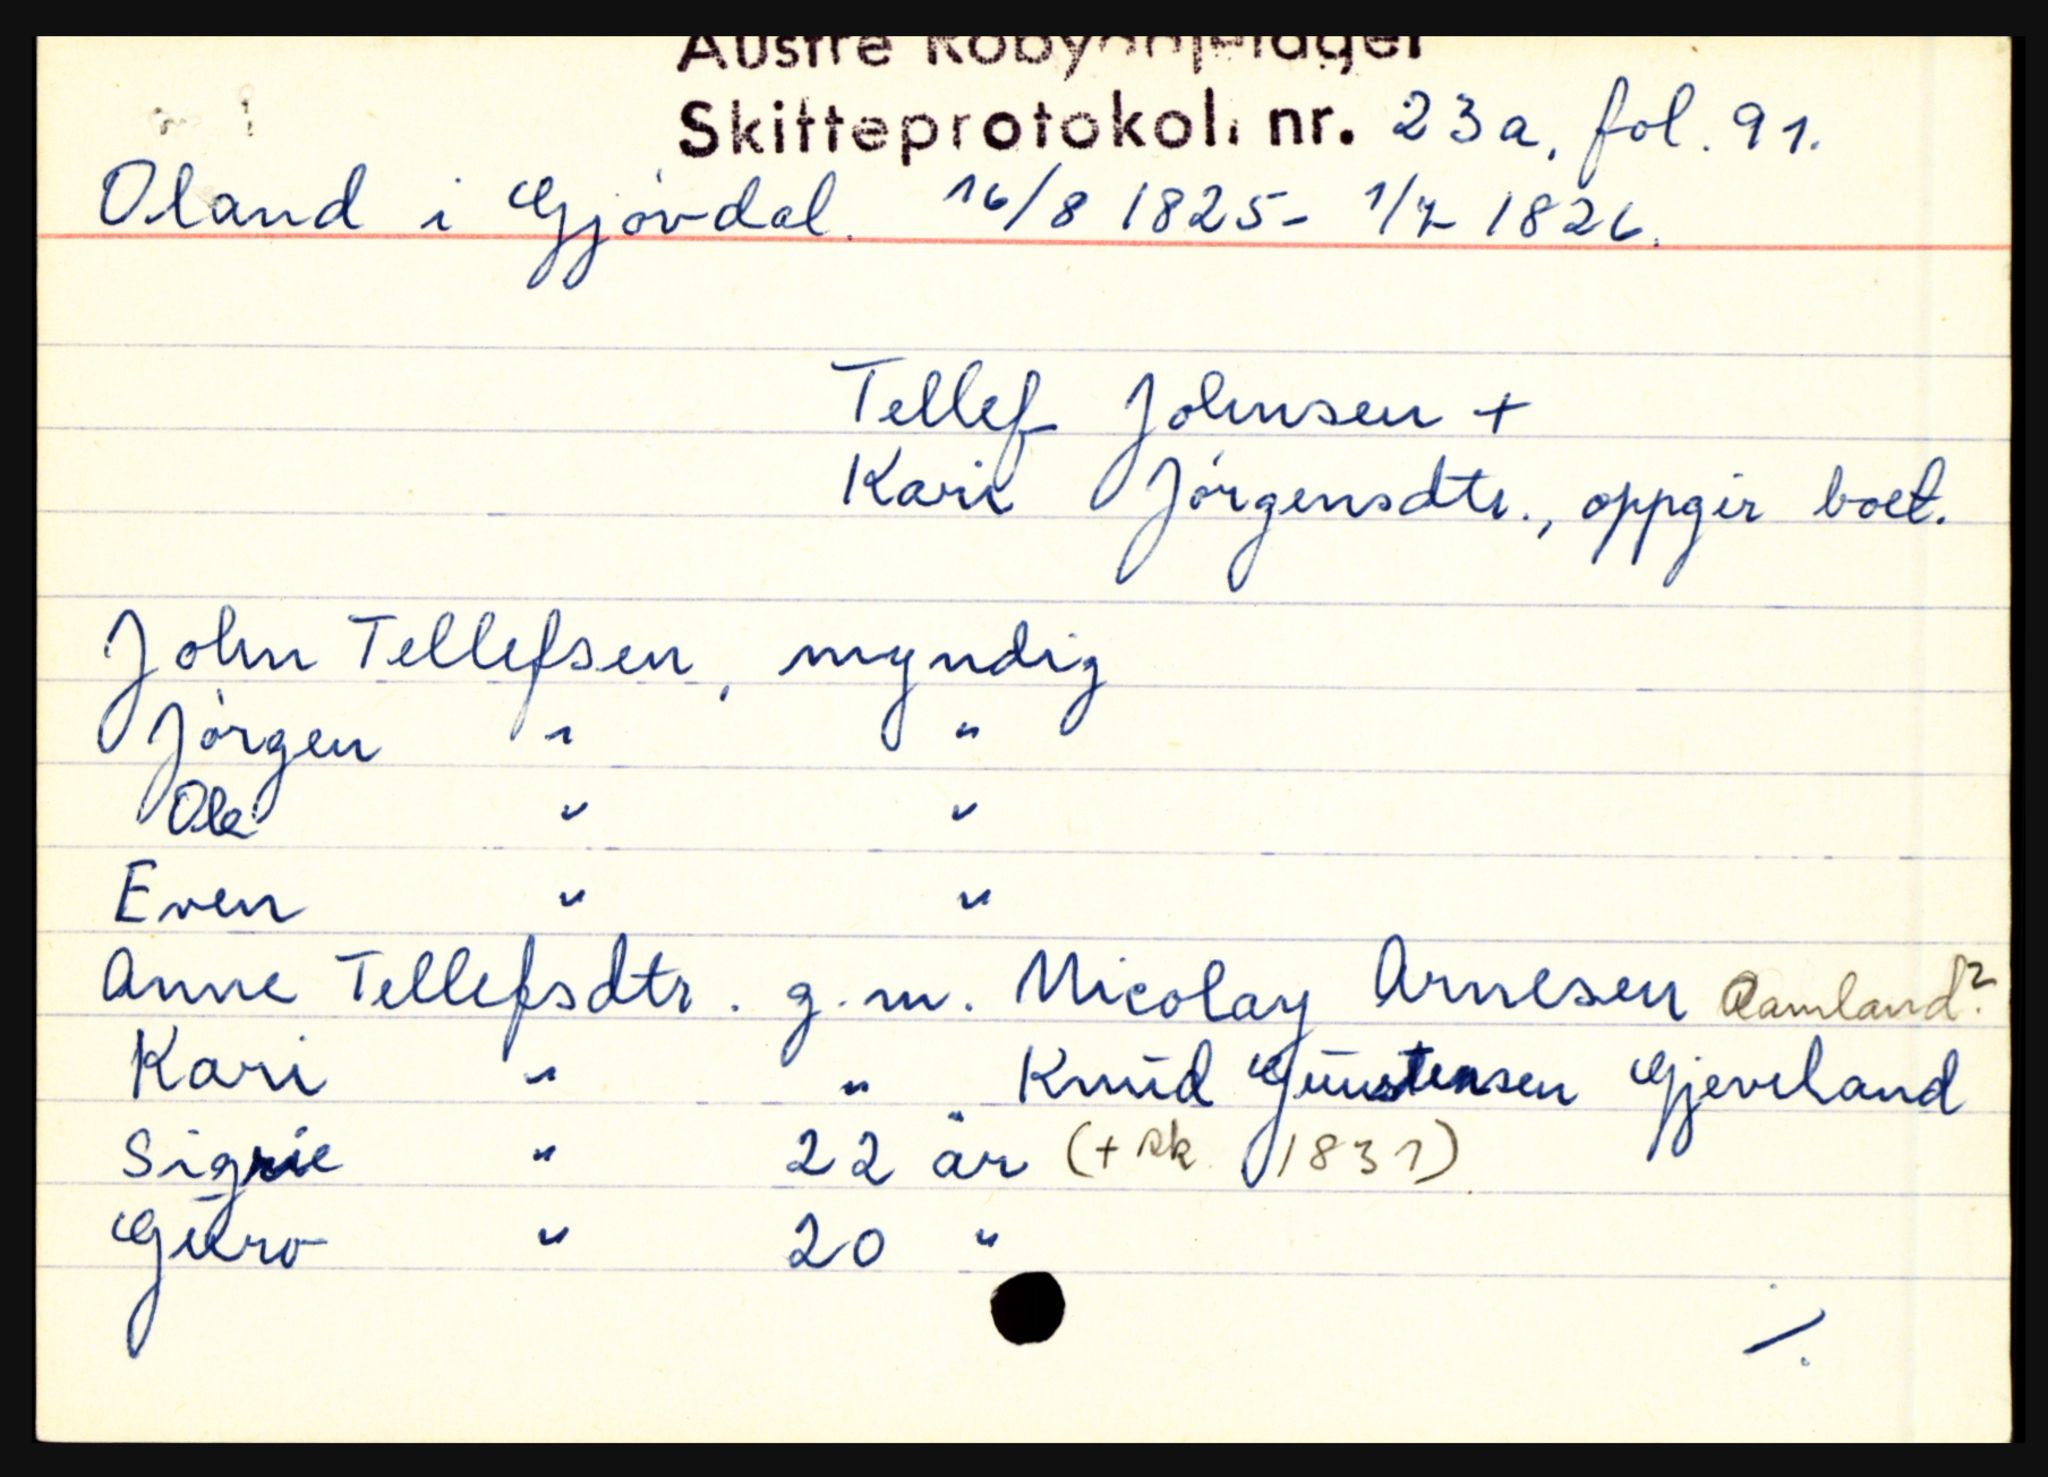 Austre Robyggjelaget
Skifteprotokoll nr. 23a, fol. 91.
Oland i Gjövdal. 16/8 1825 - 1/7 1826.
Tellef Johnsen +
Kari Jörgensdtr., oppgir boet.
John Tellefsen, myndig
Jörgen " "
Ole " "
Even " "
Anne Tellefsdtr. g.m. Nicolay Arnesen Aamland?
Kari " " Knud Gunstensen Gjeveland
Sigrie " 22 år (+ sk. 1831)
Guro " 20 "
/.